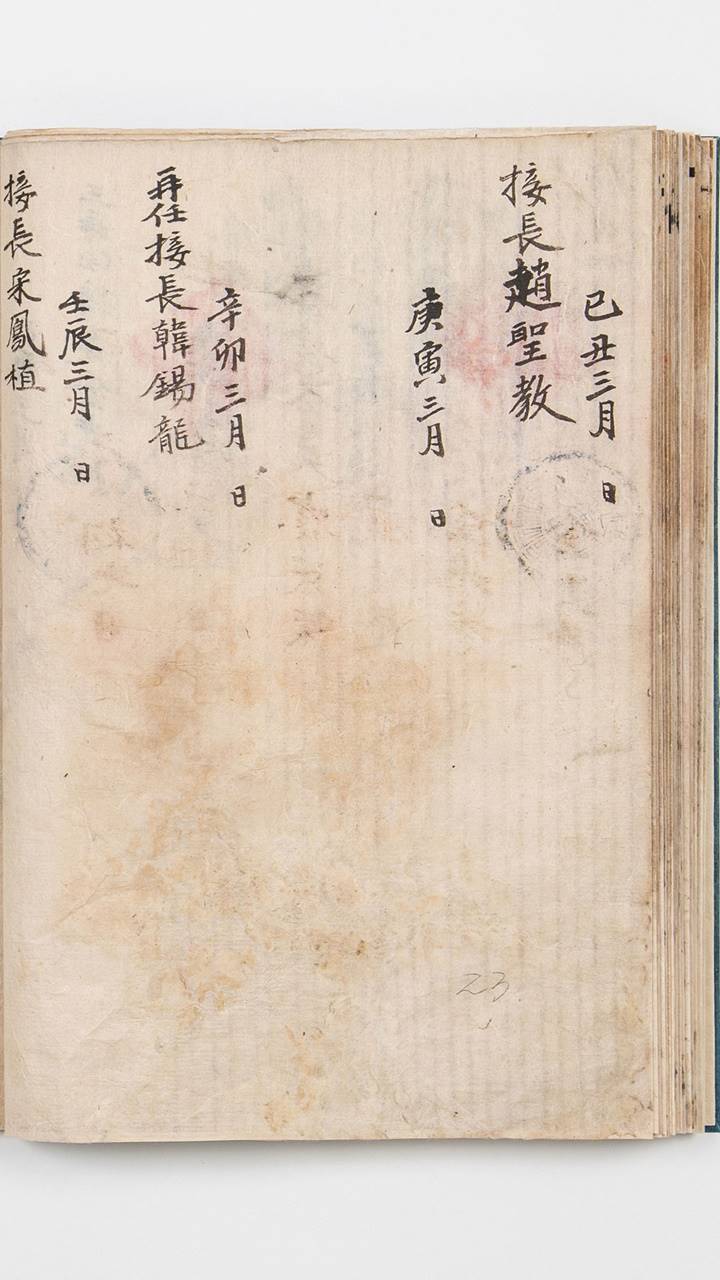 己丑三月 日
接長趙聖敎
庚寅三月 日
辛卯三月 日
再任接長韓錫龍
壬辰三月 日
接長宋鳳植
23